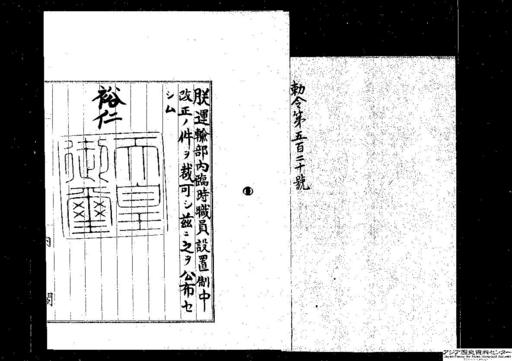 勅令第五百二十號
朕運輸部内臨時職員設置制中
改正ノ件ヲ裁可シ茲ニ之ヲ公布セ
シム
裕仁
天皇
御璽
内閣
アジア歴史資料センター
Japan Center for Asian Historical Records